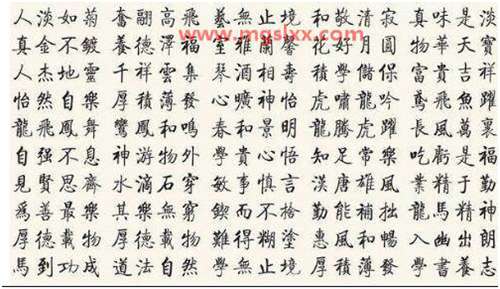 人淡如菊 奮翮高飛 藝無止境 和敬清寂 真味是淡
真金不鍍 養德澤福 室雅蘭馨 花好月圓 物華天寶
人杰地靈 千祥雲集 琴酒 壽 學儲保 富貴吉祥
怡然自樂 厚積薄發 心曠神怡 虎嘯龍吟 鳶飛魚躍
龍飛鳳舞 鸞鳳和鳴 春和景明 龍騰虎躍 長風萬裏
自强不息 神游物外 學貴心悟 知足常樂 吃虧是福
見賢思齊 水滴石穿 敏事慎言 漢唐雄風 業精于勤
爲善最樂 其樂無窮 鍥而不捨 勤能補拙 龍馬精神
厚德載物 厚德載物 難得糊塗 惠風和暢 入幽出朗
馬到功成 道法自然 學無止境 厚積薄發 學書養志
www.mgslxx.com